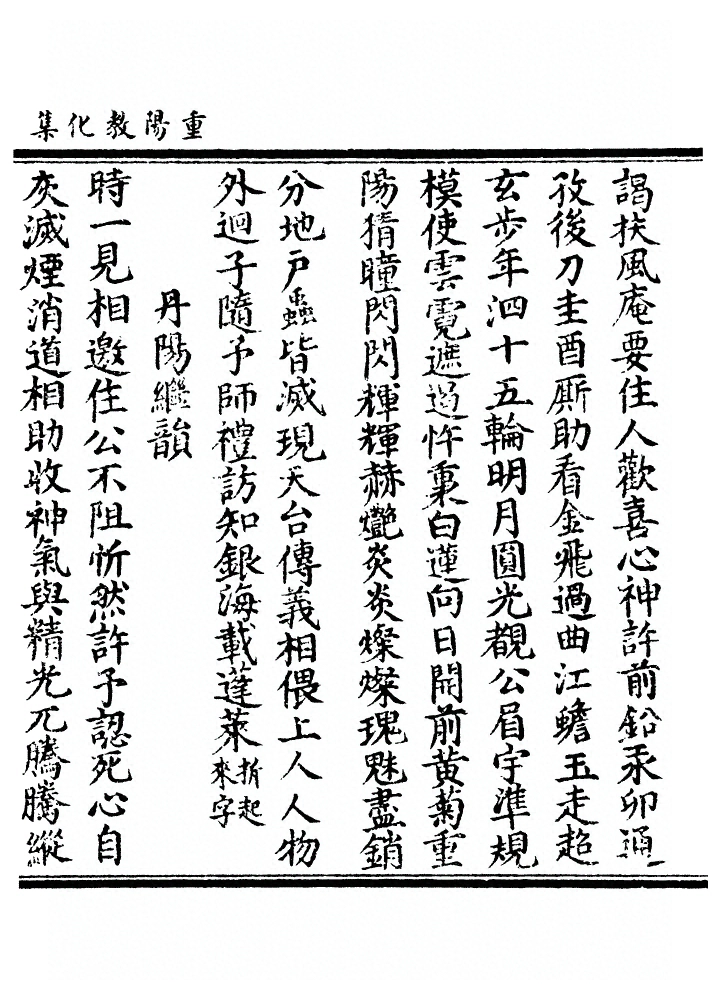 重陽教化集
謁扶風庵要住人歡喜心神許前鉛汞卯通
孜後刀圭酉厮助看金飛過曲江蟾玉走趂
玄步年泗十五輪明月圓光覩公眉宇準規
模使雲霓遮過忤東白蓮向日開前黄菊重
陽猜瞳閃閃輝輝赫艷炎炎燦燦瑰魁盡銷
分地戸蟲皆滅現天台傳義相偎上人人物
外迴子隨予師禮訪知銀海載蓬萊折起來字
丹陽繼韻
時一見相邀住公不阻忻然許予認死心自
灰滅煙消道相助收神氣與精光兀騰騰縱